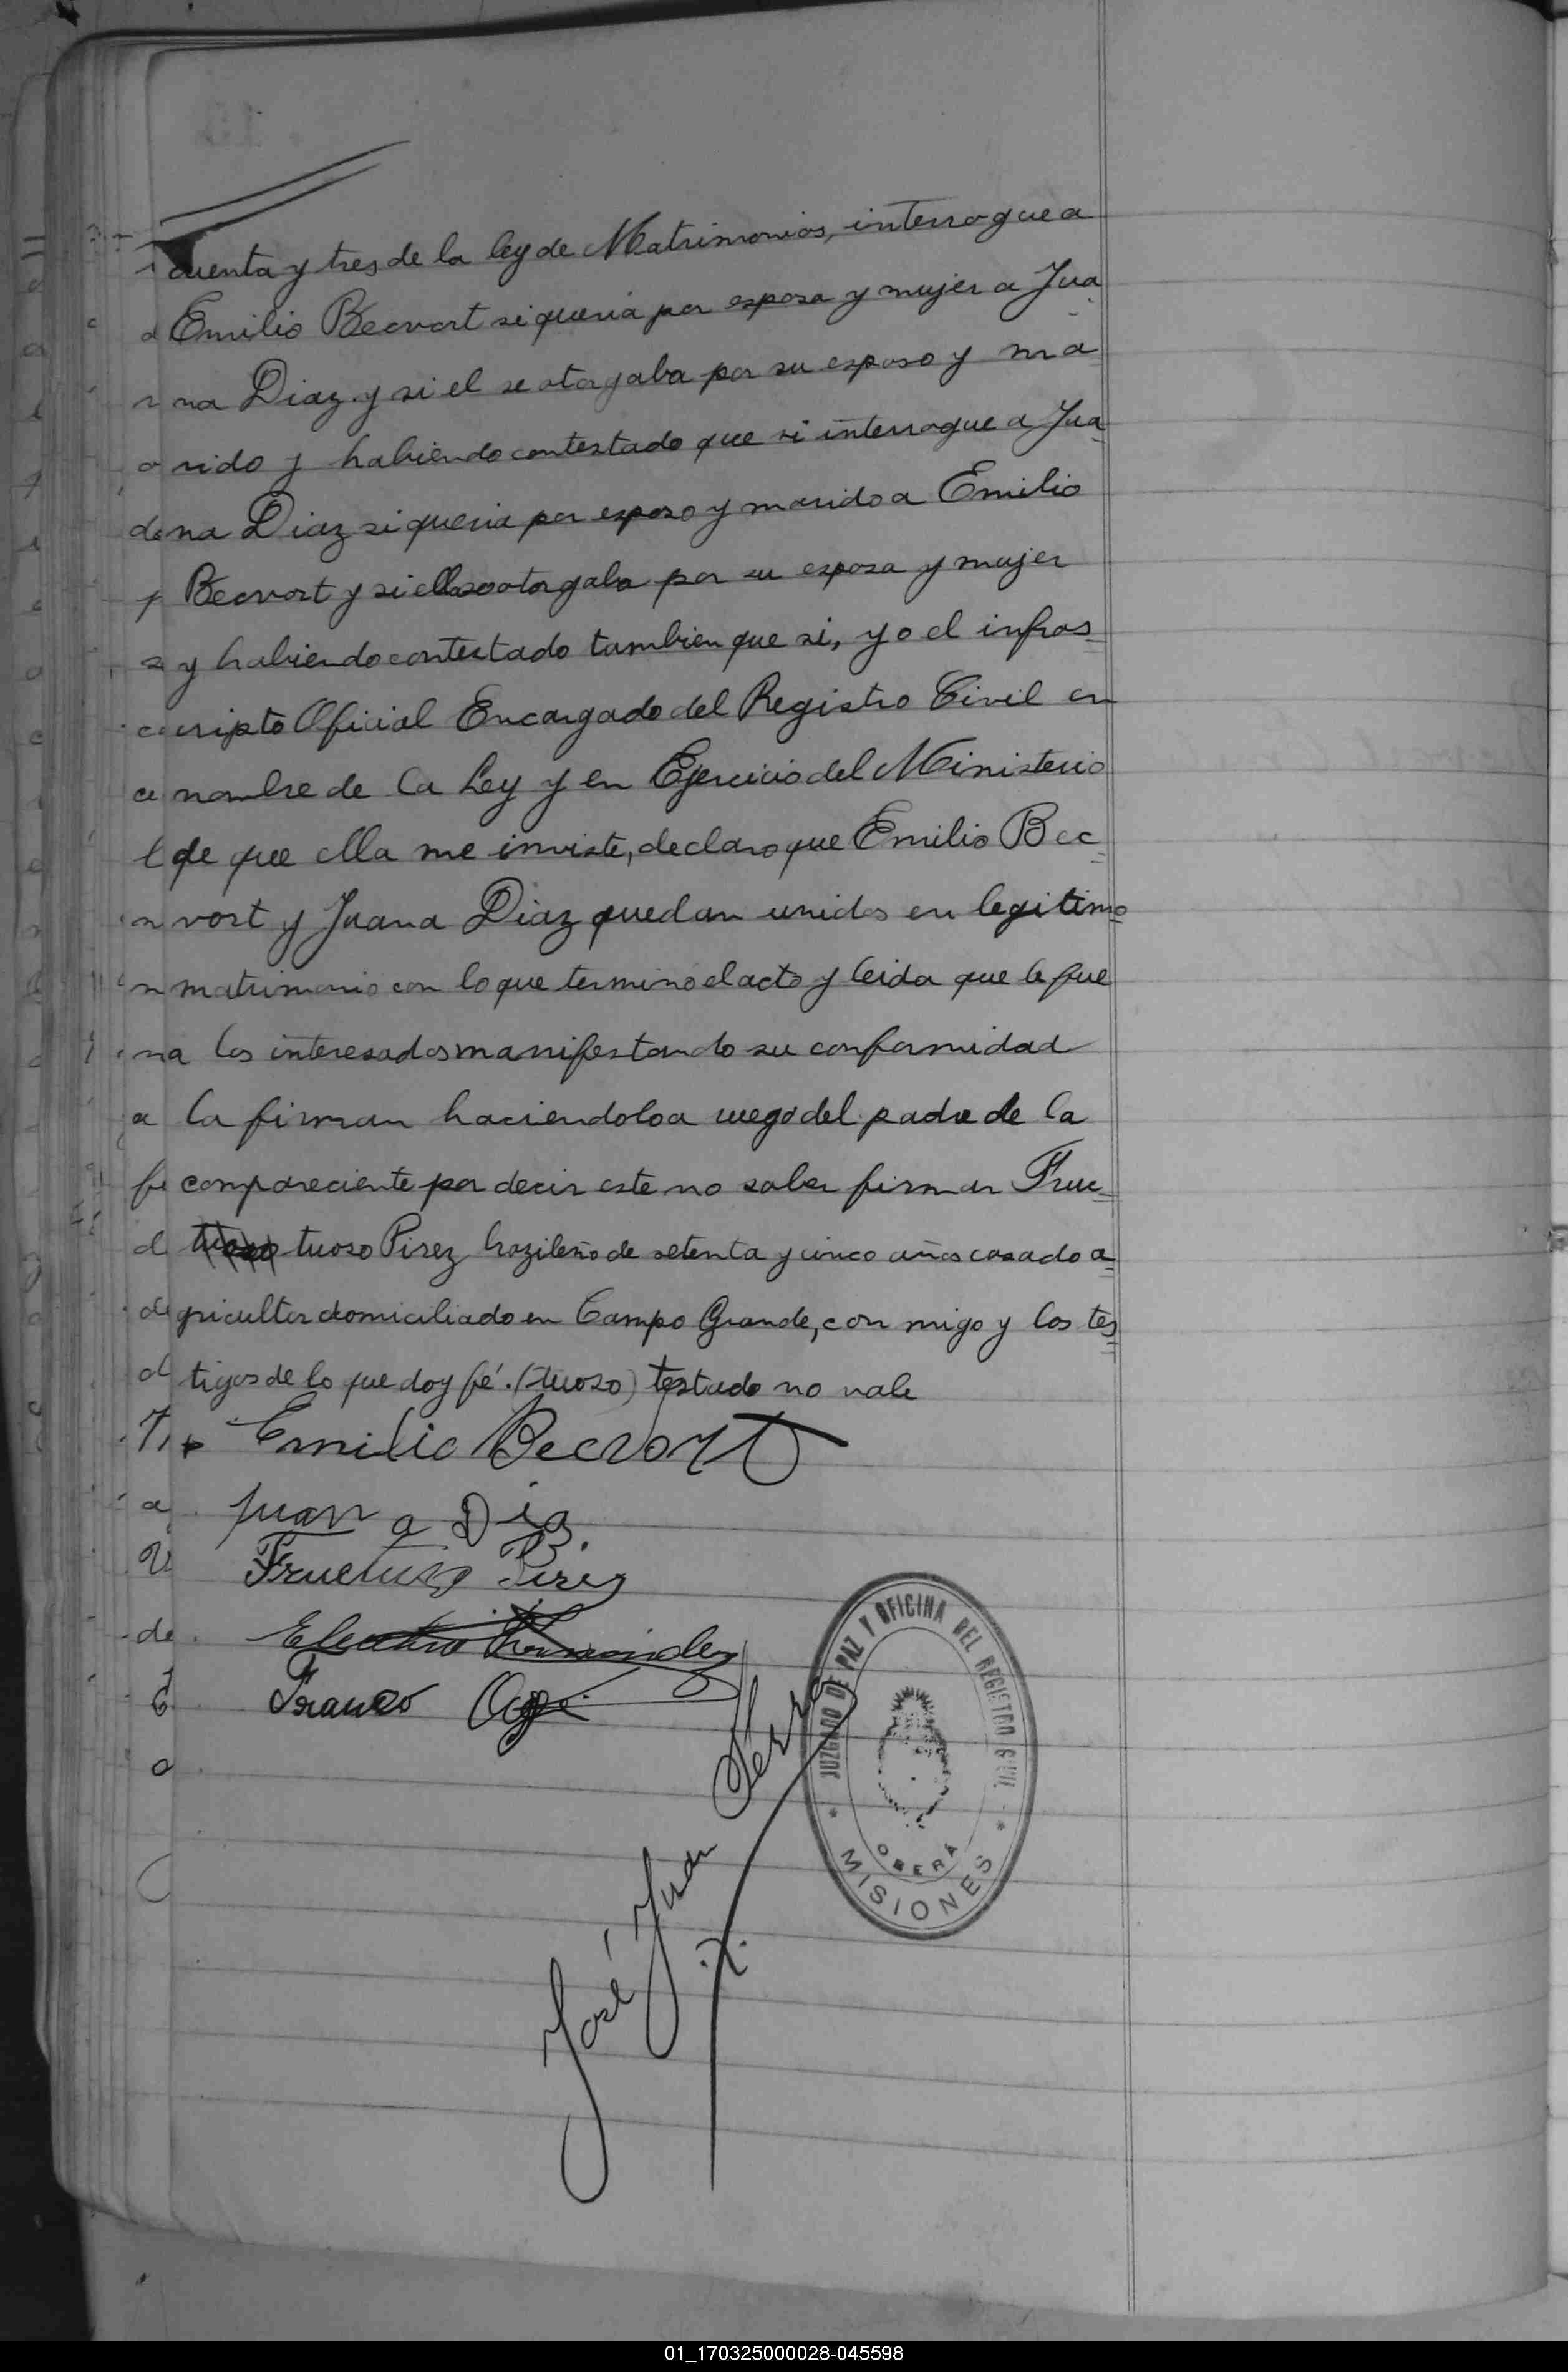 cuenta y tres de la ley de Matrimonios, interrogue a
Emilio Becvort si queria por esposa y mujer a Jua
na Diaz y si el se otorgaba por su esposo y ma
rido y habiendo contestado que si interrogue a Jua
na Diaz si queria por esposo y marido a Emilio
Becvort y si ella se otorgaba por su esposa y mujer
y habiendo contestado tambien que si, yo el infras
cripto Oficial Encargado del Registro Civil en
nombre de la Ley y en Ejercicio del Ministerio
de que ella me inviste, declaro que Emilio Bec
vort y Juana Diaz quedan unidos en legitimo
matrimonio con lo que termino el acto y leida que le fue
a los interesados manifestando su conformidad
la firman haciendolo a ruego del padre de la
compareciente por decir este no saber firmar Fruc
tuoso tuoso Pirez brazileño de setenta y cinco años casado a
gricultor domiciliado en Campo Grande, con migo y los tes
tigos de lo que doy fé. (tuoso) testado no vale
Emilio Becvort
Juan a Diaz
Fructuoso Pirez
Eleuterio Fernandez
Franco
José Juan
JUZGADO DE PAZ Y OFICINA DEL REGISTRO CIVIL
OBERA
MISIONES
01_170325000028-045598